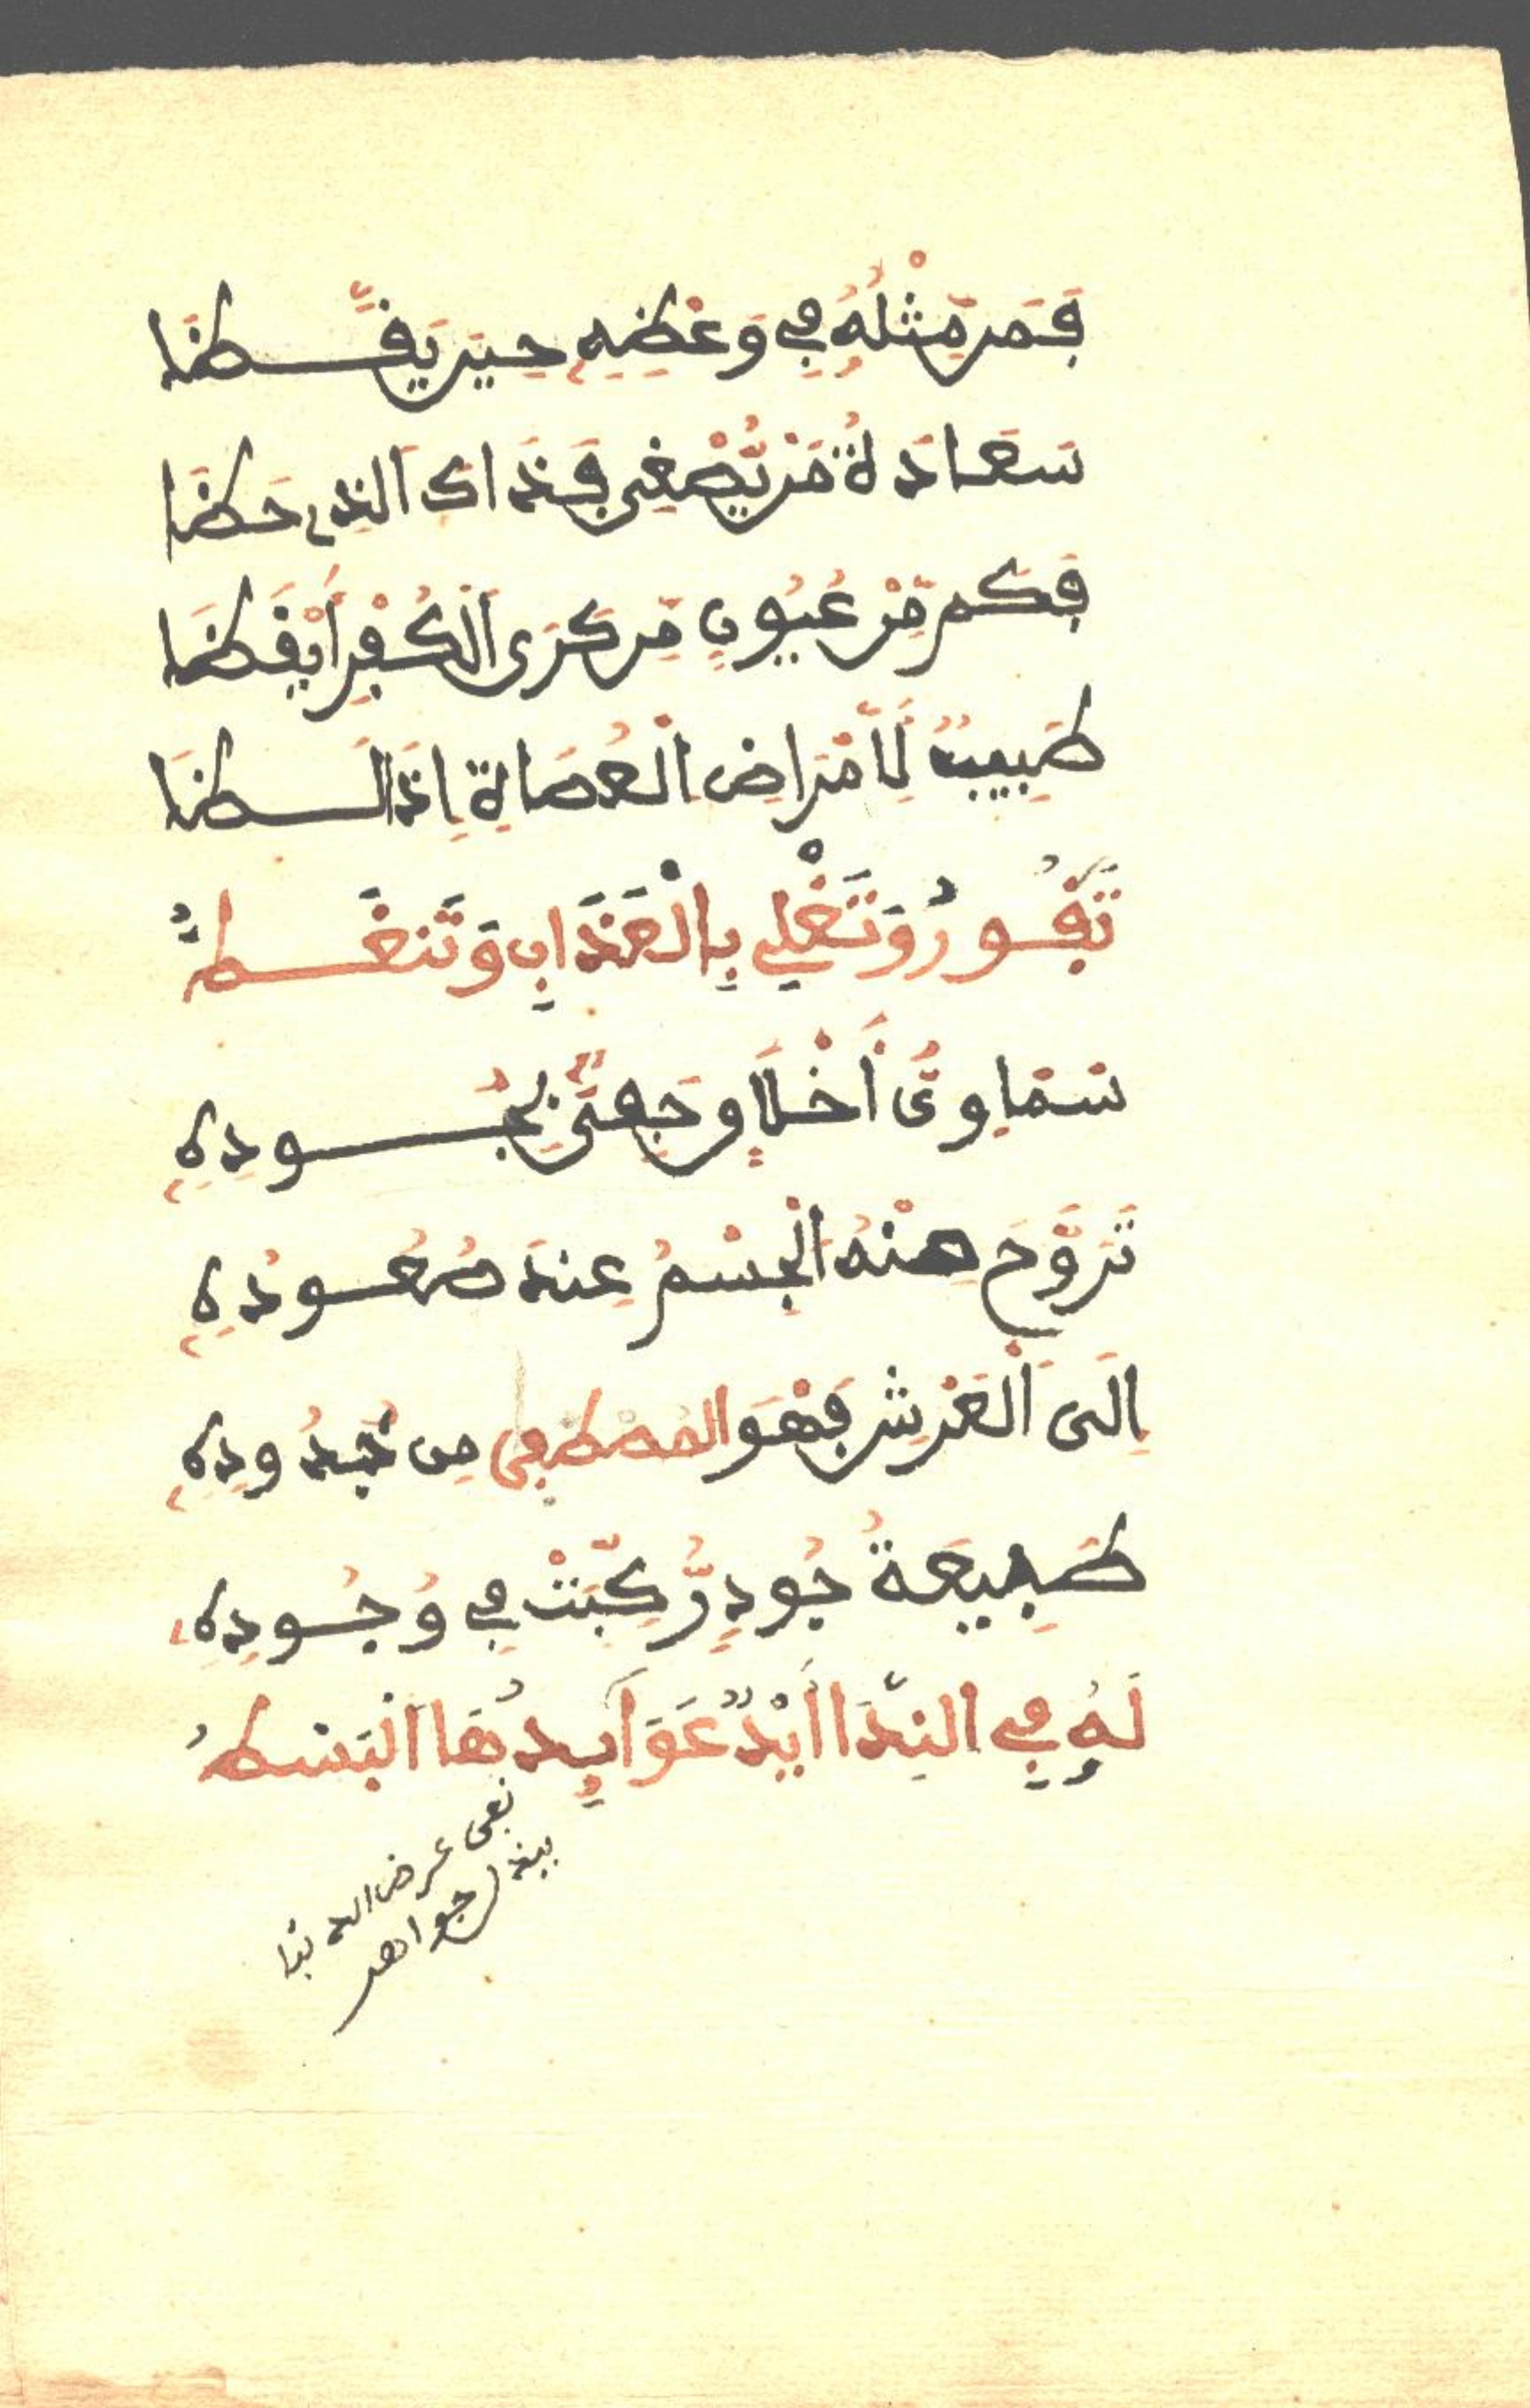 فَمَن مِّثْلُهُ فِي وَعْظِهِ حِينَ يَقَّظَا
سَعَادَةُ مَن يُّصْغِى فَذَاكَ الَّذِي حَظَا
فَكَم مِّنْ عُيُونٍ مِّن كَرَى الْكُفْرِ أَيْقَظَا
طَبِيبٌ لِّأَمْرَاضِ الْعُصَاةِ إِذَا لَظَا
تَفُورُ وَتَغْلِي بِالْعَذَابِ وَتَنغَطُّ
سَمَاوِىُّ أَخْلَاقٍ وَجَفْنٍ بِجُودِهِ
تَرَوَّحَ مِنْهُ الْجِسْمُ عِندَ صُعُودِهِ
إِلَى الْعَرْشِ فَهْوَ الْمُصْطَفَى مِن جُدُودِهِ
طَبِيعَةُ جُودٍ رُّكِّبَتْ فِي وُجُودِهِ
لَهُ فِي النِّدَا أَيْدٌ عَوَآيِدُهَا الْبَسْطُ
نفى عرض الدنيا
ببذل جواهر